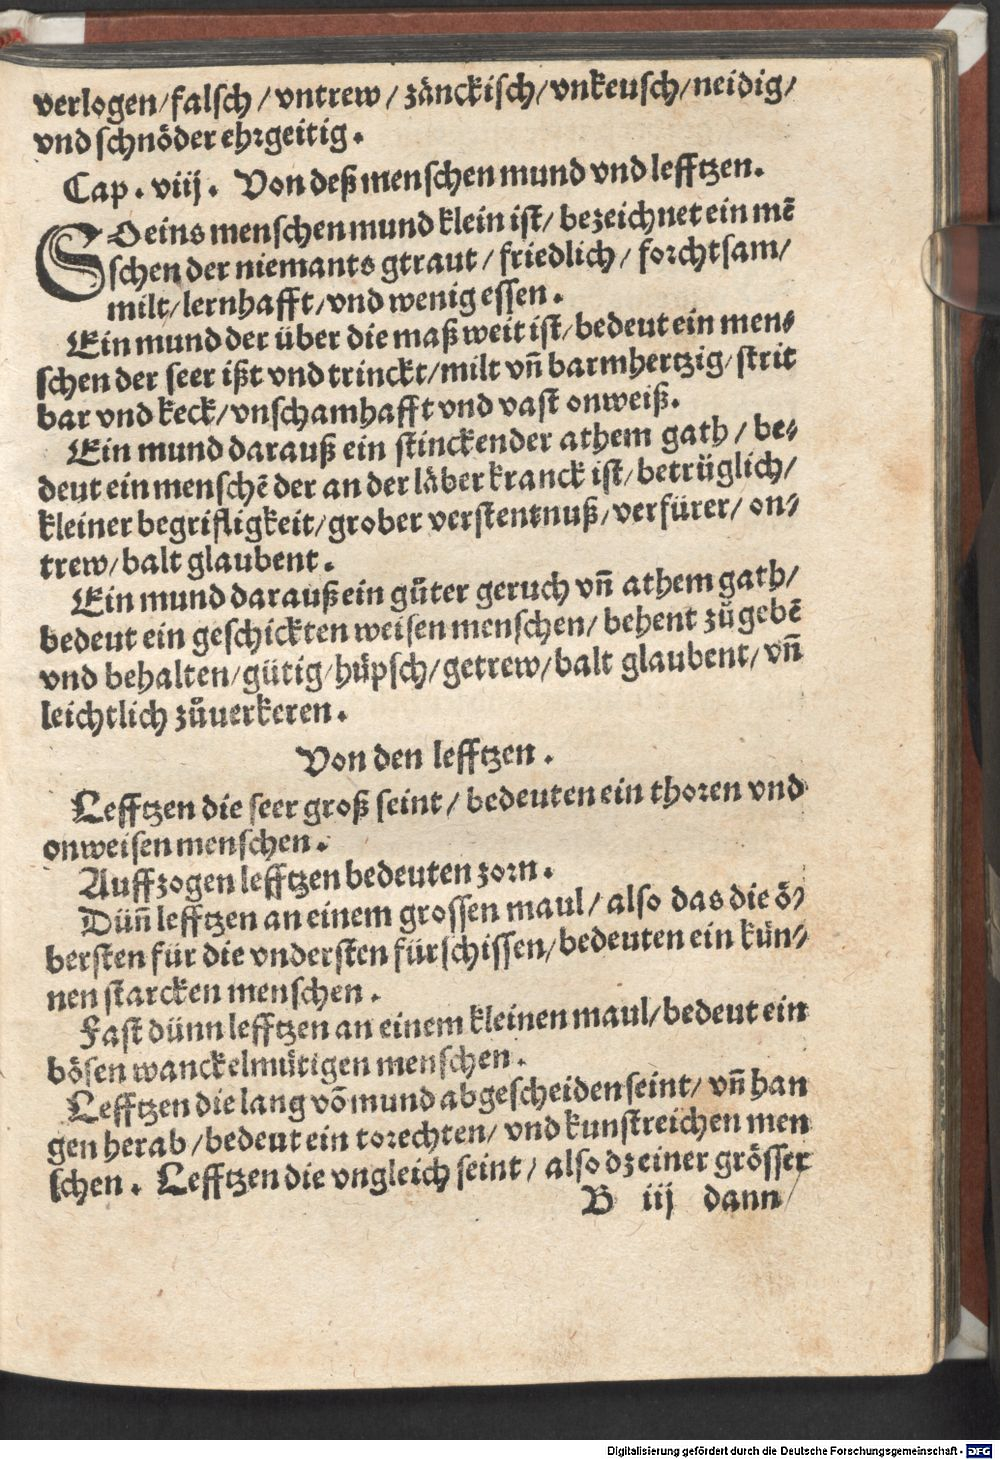 verlogen/falsch/vntrew/zänckisch/vnkeusch/neidig/
vnd schnöder ehrgeitig.
Cap. viij. Von deß menschen mund vnd lefftzen.
SO eins menschen mund klein ist/bezeichnet ein mē
schen der niemants gtraut/friedlich/forchtsam/
milt/lernhafft/vnd wenig essen.
Ein mund der über die maß weit ist/bedeut ein men⸗
schen der seer ißt vnd trinckt/milt vn̄ barmhertzig/strit
bar vnd keck/vnschamhafft vnd vast onweiß.
Ein mund darauß ein stinckender athem gath/be⸗
deut ein menschē der an der läber kranck ist/betrüglich/
kleiner begrifligkeit/grober verstentnuß/verfürer/on⸗
trew/balt glaubent.
Ein mund darauß ein gůter geruch vn̄ athem gath/
bedeut ein geschickten weisen menschen/behent zů gebē
vnd behalten/gütig/hüpsch/getrew/balt glaubent/vn̄
leichtlich zůuerkeren.
Von den lefftzen.
Lefftzen die seer groß seint/bedeuten ein thoren vnd
onweisen menschen.
Auffzogen lefftzen bedeuten zorn.
Dün̄ lefftzen an einem grossen maul/also das die ö⸗
bersten für die vndersten fürschissen/bedeuten ein kün⸗
nen starcken menschen.
Fast dünn lefftzen an einem kleinen maul/bedeut ein
bösen wanckelmütigen menschen.
Lefftzen die lang vō mund abgescheiden seint/vn̄ han
gen herab/bedeut ein torechten/vnd kunstreichen men
schen. Lefftzen die vngleich seint/also dz einer grösser
B iij dann/
Digitalisierung gefördert durch die Deutsche Forschungsgemeinschaft - DFG